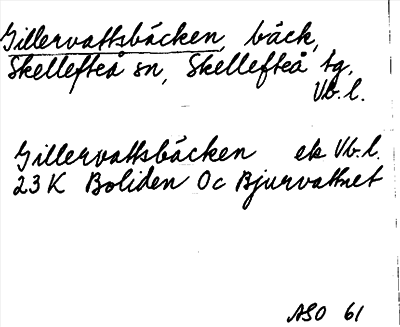 Gillervattsbäcken, bäck,
Skellefteå sn, Skellefteå tg.
Vb. l.
Gillervattsbäcken ek Vb. l.
23 K Boliden 0c Bjurvattnet
ASO 61